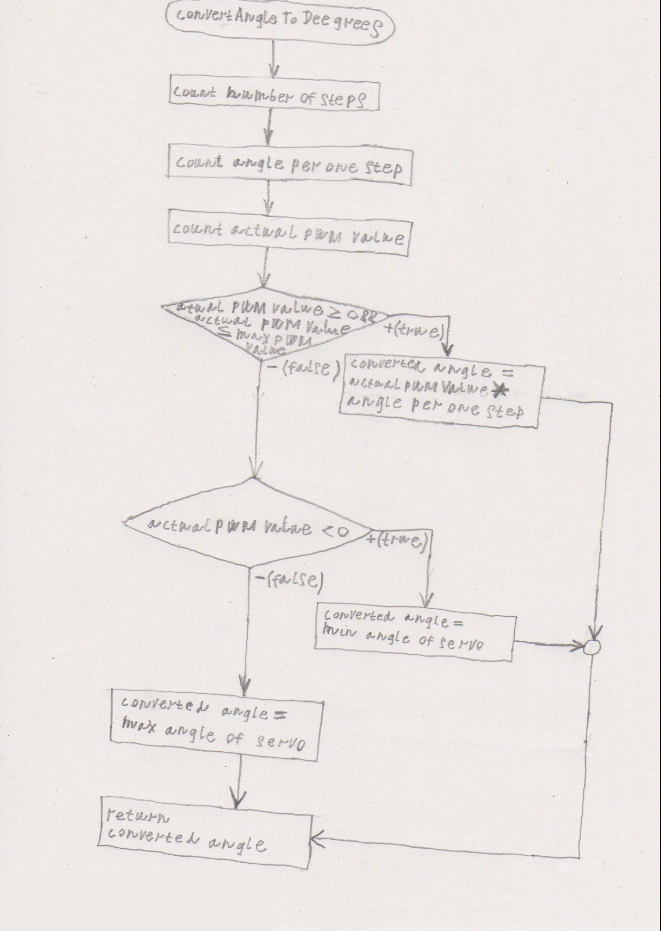 convertAngleToDeegrees
count number of steps
count angle per one step
count actual PWM value
actual PWM value ≥ 0 &&
actual PWM value
≤ max PWM
value
+(true)
-(false)
converted angle =
actual PWM value *
angle per one step
actual PWM value < 0
+(true)
-(false)
converted angle =
min angle of servo
converted angle =
max angle of servo
return
converted angle